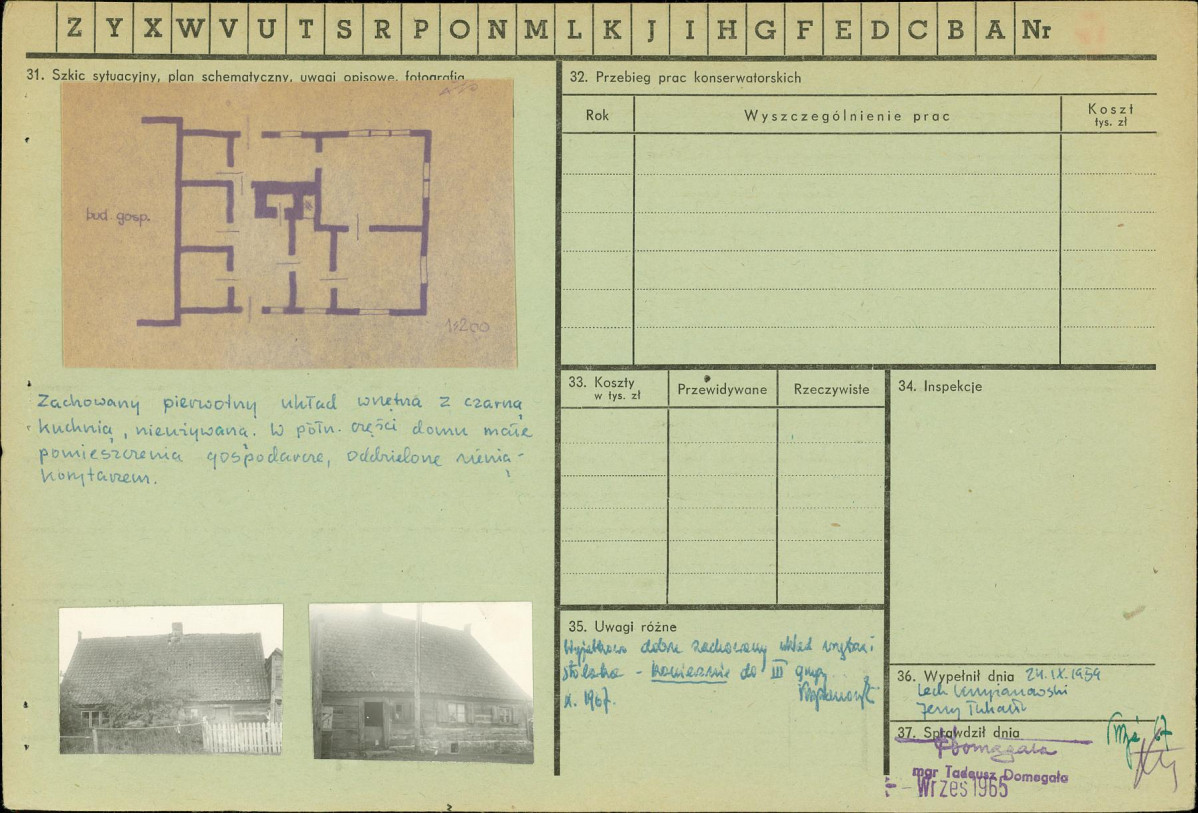 Z Y X W V U T S R P O N M L K J I H G F E D C B A Nr
31. Szkic sytuacyjny, plan schematyczny, uwagi opisowe, fotografia
bud. gosp.
1:200
Zachowany pierwotny układ wnętrza z czarną
kuchnią, nieużywaną. W półn. części domu małe
pomieszczenia gospodarcze, oddzielone sienią-
korytarzem.
32. Przebieg prac konserwatorskich
Rok
Wyszczególnienie prac
Koszt
tys. zł
33. Koszty
w tys. zł
Przewidywane
Rzeczywiste
34. Inspekcje
35. Uwagi różne
Wyjątkowo dobrze zachowany układ wnętrz i
stolarka - koniecznie do III grupy
X. 1967.
36. Wypełnił dnia 24.IX.1959
Lech Krzyżanowski
Jerzy
37. Sprawdził dnia
Domagała
mgr Tadeusz Domagała
- Wrzes 1965
67